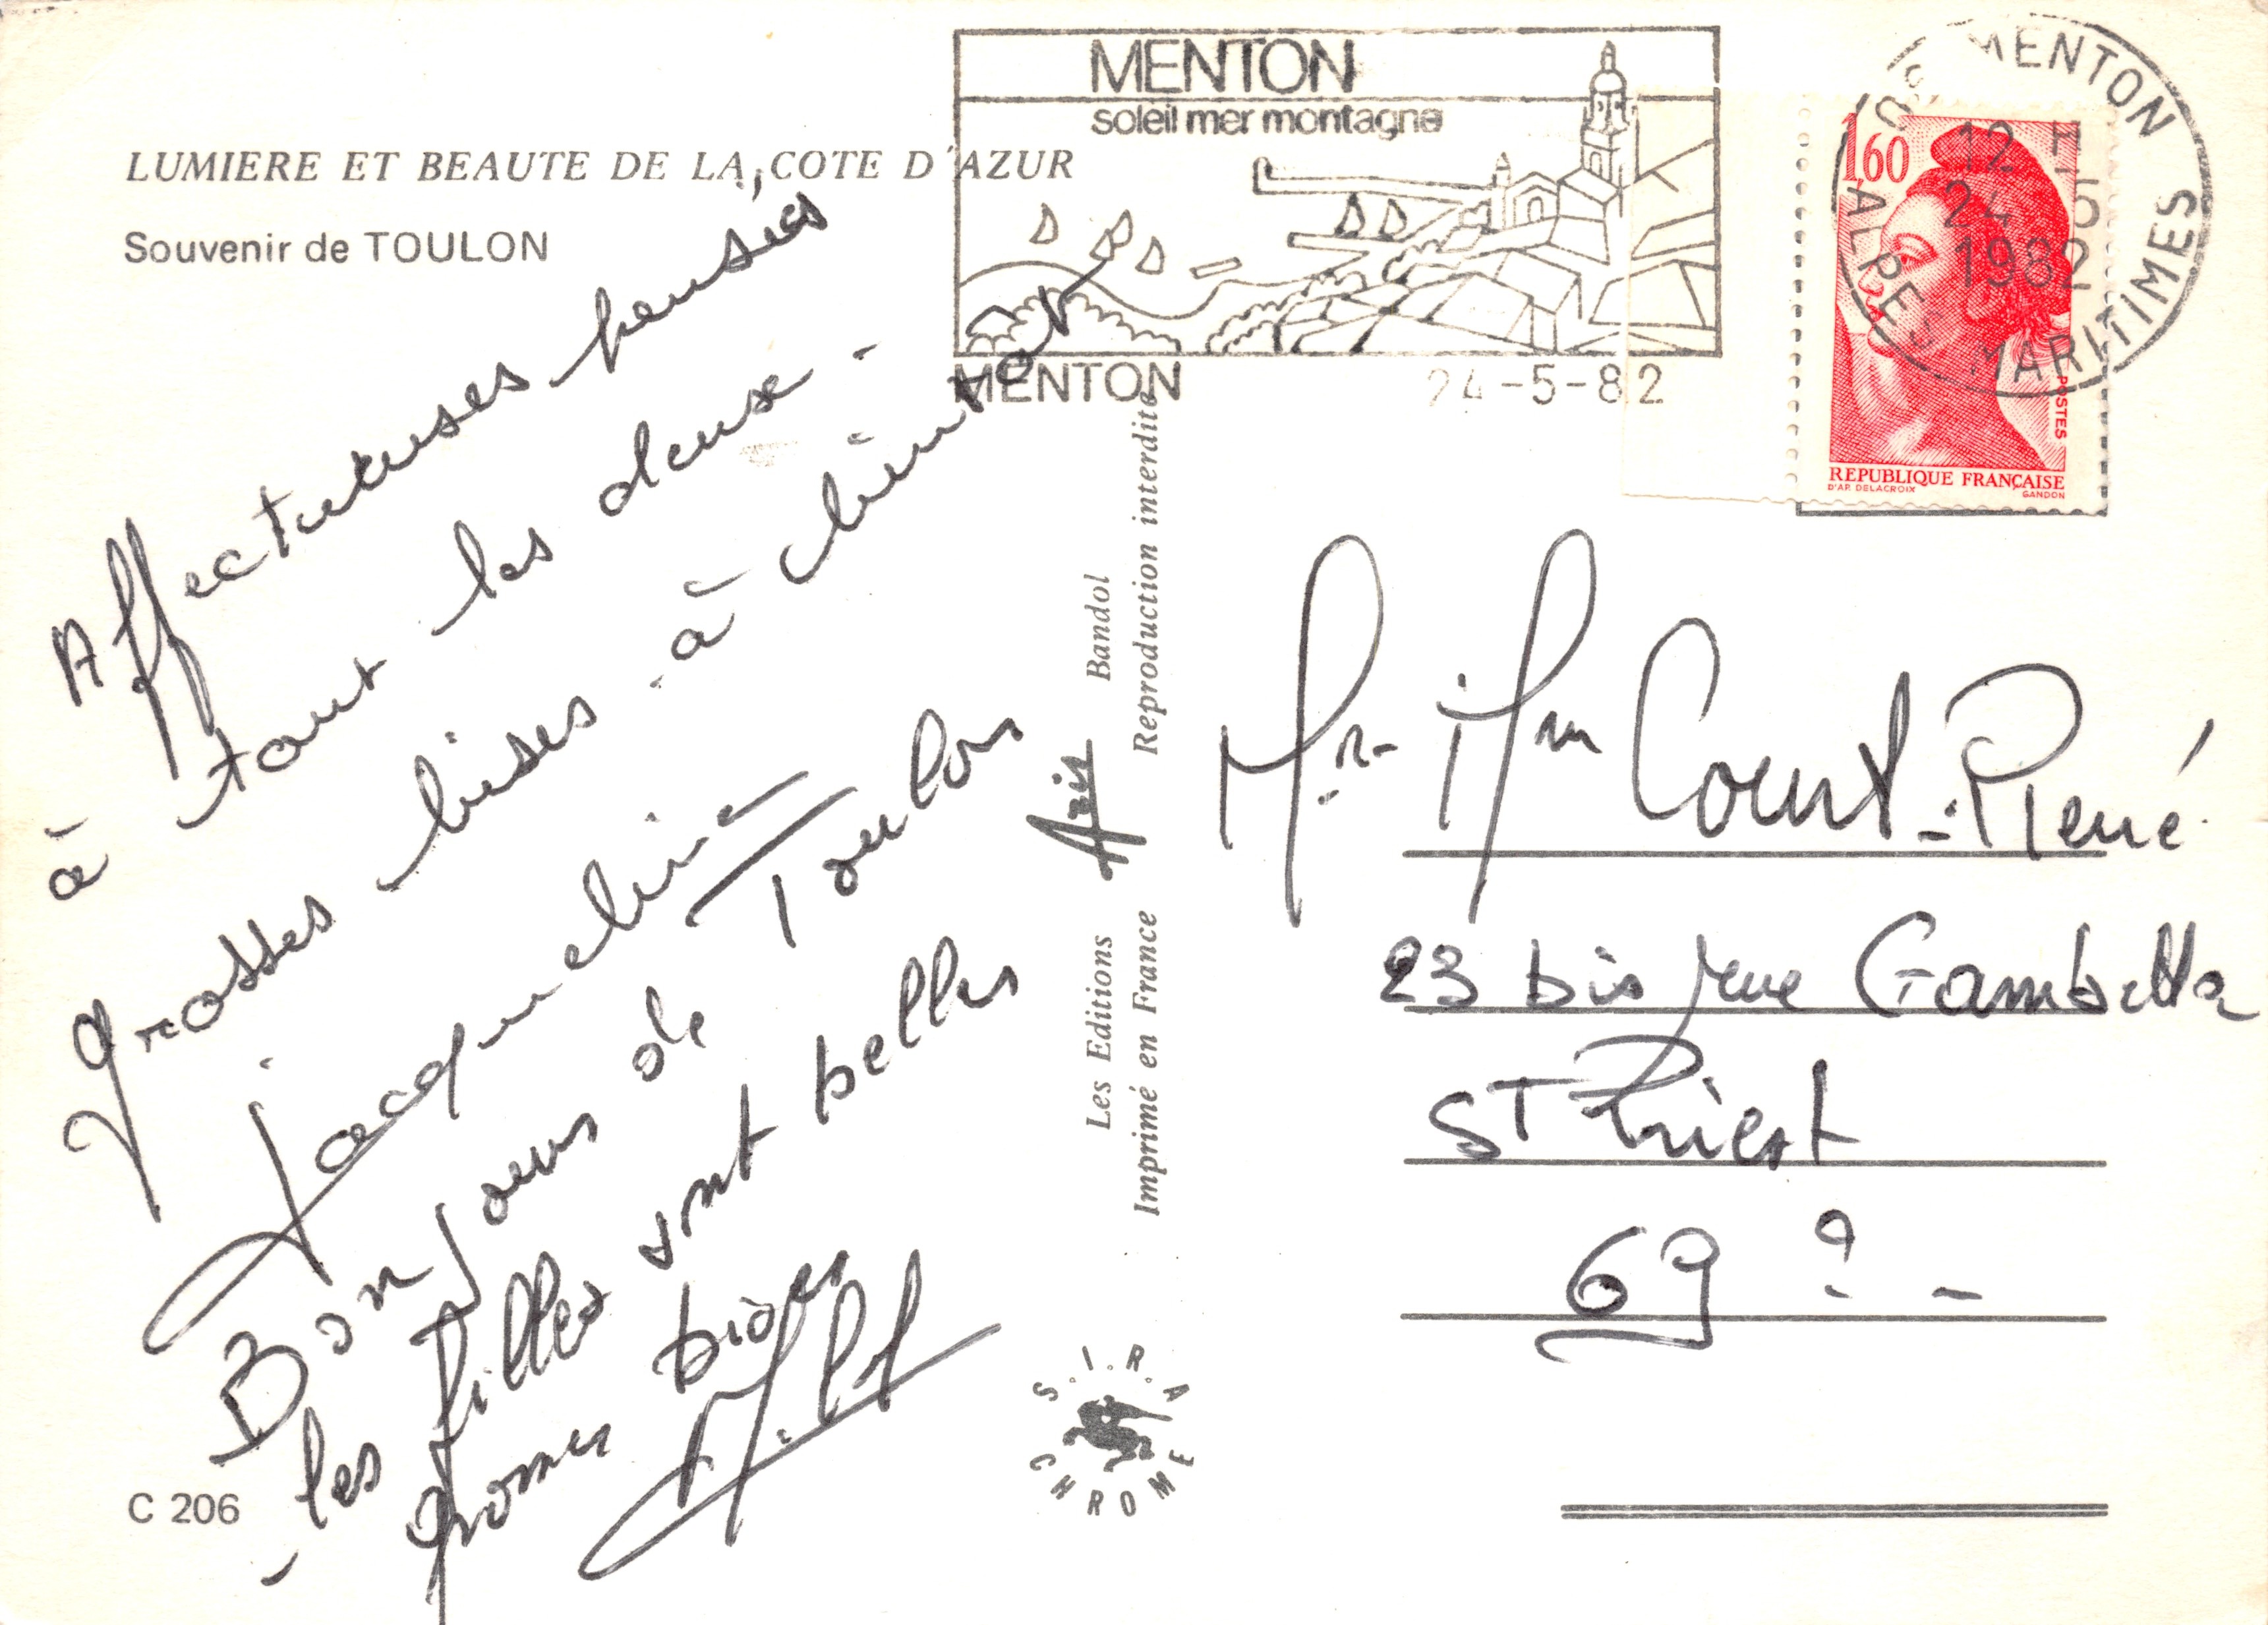 LUMIERE ET BEAUTE DE LA COTE D'AZUR
Souvenir de TOULON
Affectueuses pensées
à tout les deux -
grosses bises - à bientôt
Jacqueline
Bonjour de Toulon
- les filles sont belles
grosses bises
C 206
Les Editions Aris Bandol
Imprimé en France Reproduction interdite
S.I.R.A CHROME
MENTON
soleil mer montagne
MENTON 24-5-82
MENTON
12 H
24 5
1982
ALPES MARITIMES
1,60
POSTES
REPUBLIQUE FRANÇAISE
D'AP. DELACROIX GANDON
Mr Mm Court - René
23 bis rue Gambetta
ST Priest
69 ? -